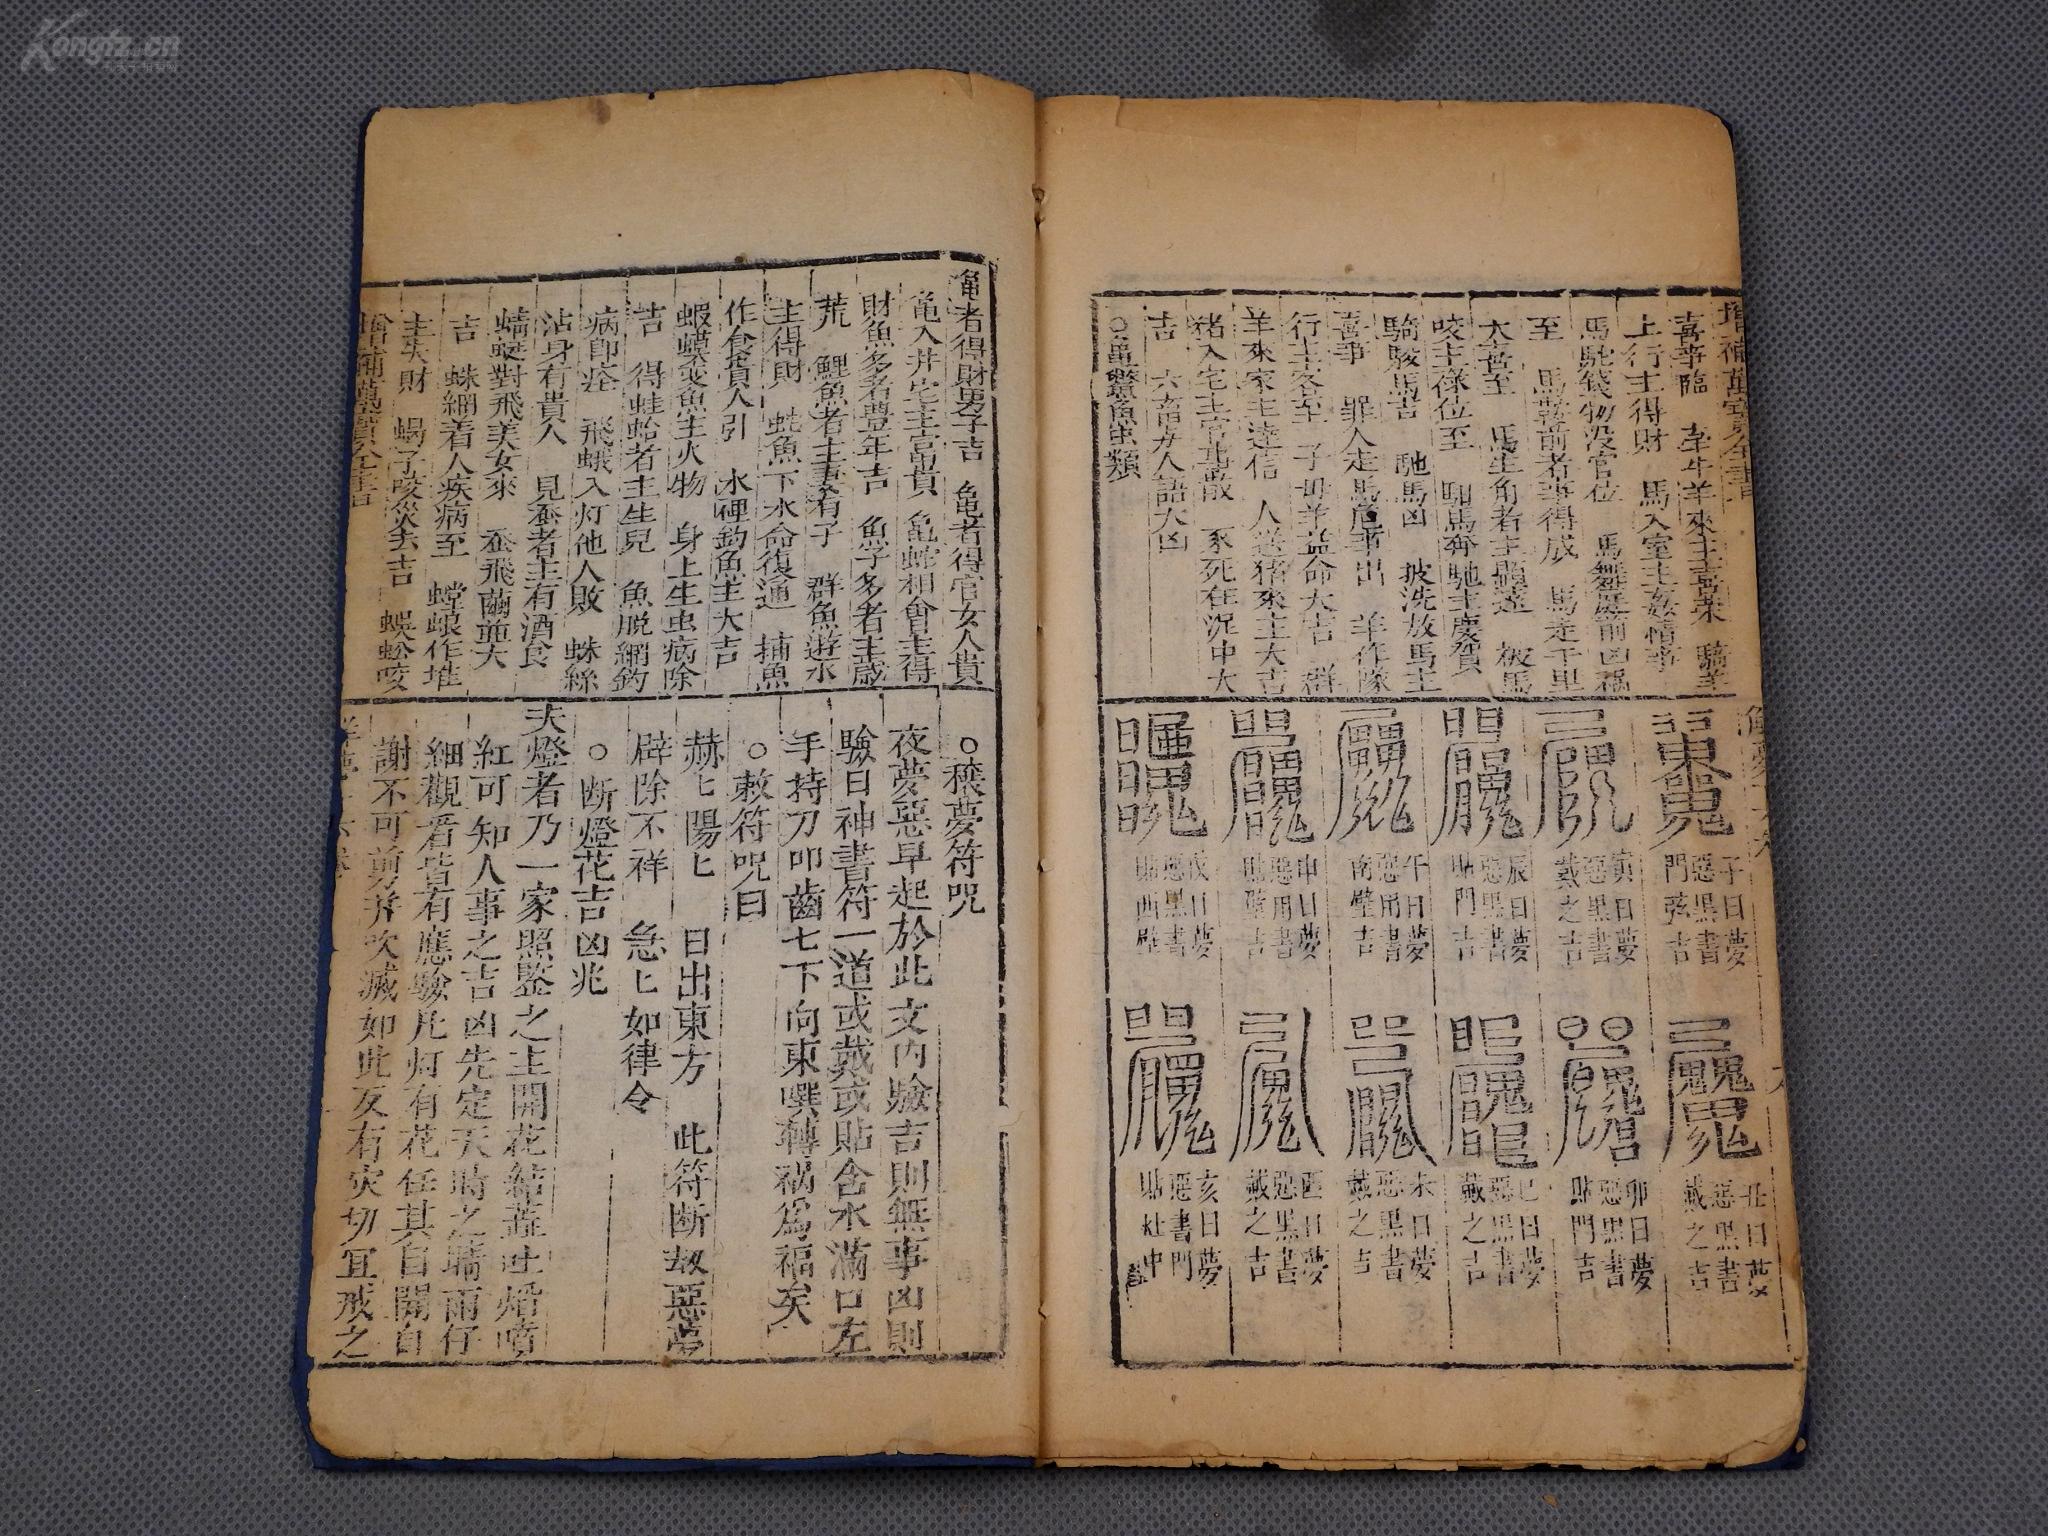 Kongfz.cn
增補萬寶全書
喜事臨 牽牛羊來主喜樂 騎羊
上行主得財 馬入室主姦情事
馬馱錢物没官位 馬舞庭前凶禍
至 馬䓁前者事得成 馬走千里
大喜至 馬生角者主顯達 被馬
咬主祿位至 馬奔馳主慶賀
騎駿馬吉 馳馬凶 披洗放馬主
喜事 罪人走馬危事出 羊作隊
行主客至 子母羊益命大吉 群
羊來家主達信 人送猪來主大吉
猪入宅主官散 豕死在泥中大
吉 六畜与人語大凶
○黽鱉魚虫類
子日夢
惡黒書
門弦吉
寅日夢
惡黒書
戴之吉
辰日夢
惡黒書
貼門吉
午日夢
惡用書
南壁吉
申日夢
惡用書
貼壁吉
戌日夢
惡黒書
貼西壁
丑日夢
惡黒書
戴之吉
卯日夢
惡黒書
貼門吉
巳日夢
惡黒書
戴之吉
未日夢
惡黒書
戴之吉
酉日夢
惡黒書
戴之吉
亥日夢
惡書門
貼灶中
龜者得財男子吉 亀者得官女人貴
亀入井宅主富貴 亀蛇相會主得
財魚多者豊年吉 魚字多者主歳
荒 鯉魚者主妻有子 群魚遊水
主得財 蚿魚下水命復通 捕魚
作食貴人引 水裡釣魚主大吉
蝦蟆災魚主火物 身上生虫病除
吉 得蛙蛤者主生兒 魚脱網釣
病即痊 飛蛾入灯他人敗 蛛絲
沾身有貴人 見蚕者主有酒食
蜻蜓對飛美女來 蚕飛繭並大
吉 蛛網着人疾病至 螳螂作堆
主失財 蝎子咬災去吉 蜈蚣咬
增補萬寶全書
○穰夢符咒
夜夢惡早起於此文内驗吉則無事凶則
驗日神書符一道或戴或貼含水滿口左
手持刀叩齒七下向東噀轉禍爲福矣
○敕符呪曰
赫匕陽匕 日出東方 此符断却惡夢
辟除不祥 急匕如律令
○断燈花吉凶兆
夫燈者乃一家照監之主開花結蕋吐焰噴
紅可知人事之吉凶先定天時之晴雨仔
細觀看皆有應驗凡灯有花任其自開自
謝不可剪并吹滅如此反有灾切宜戒之